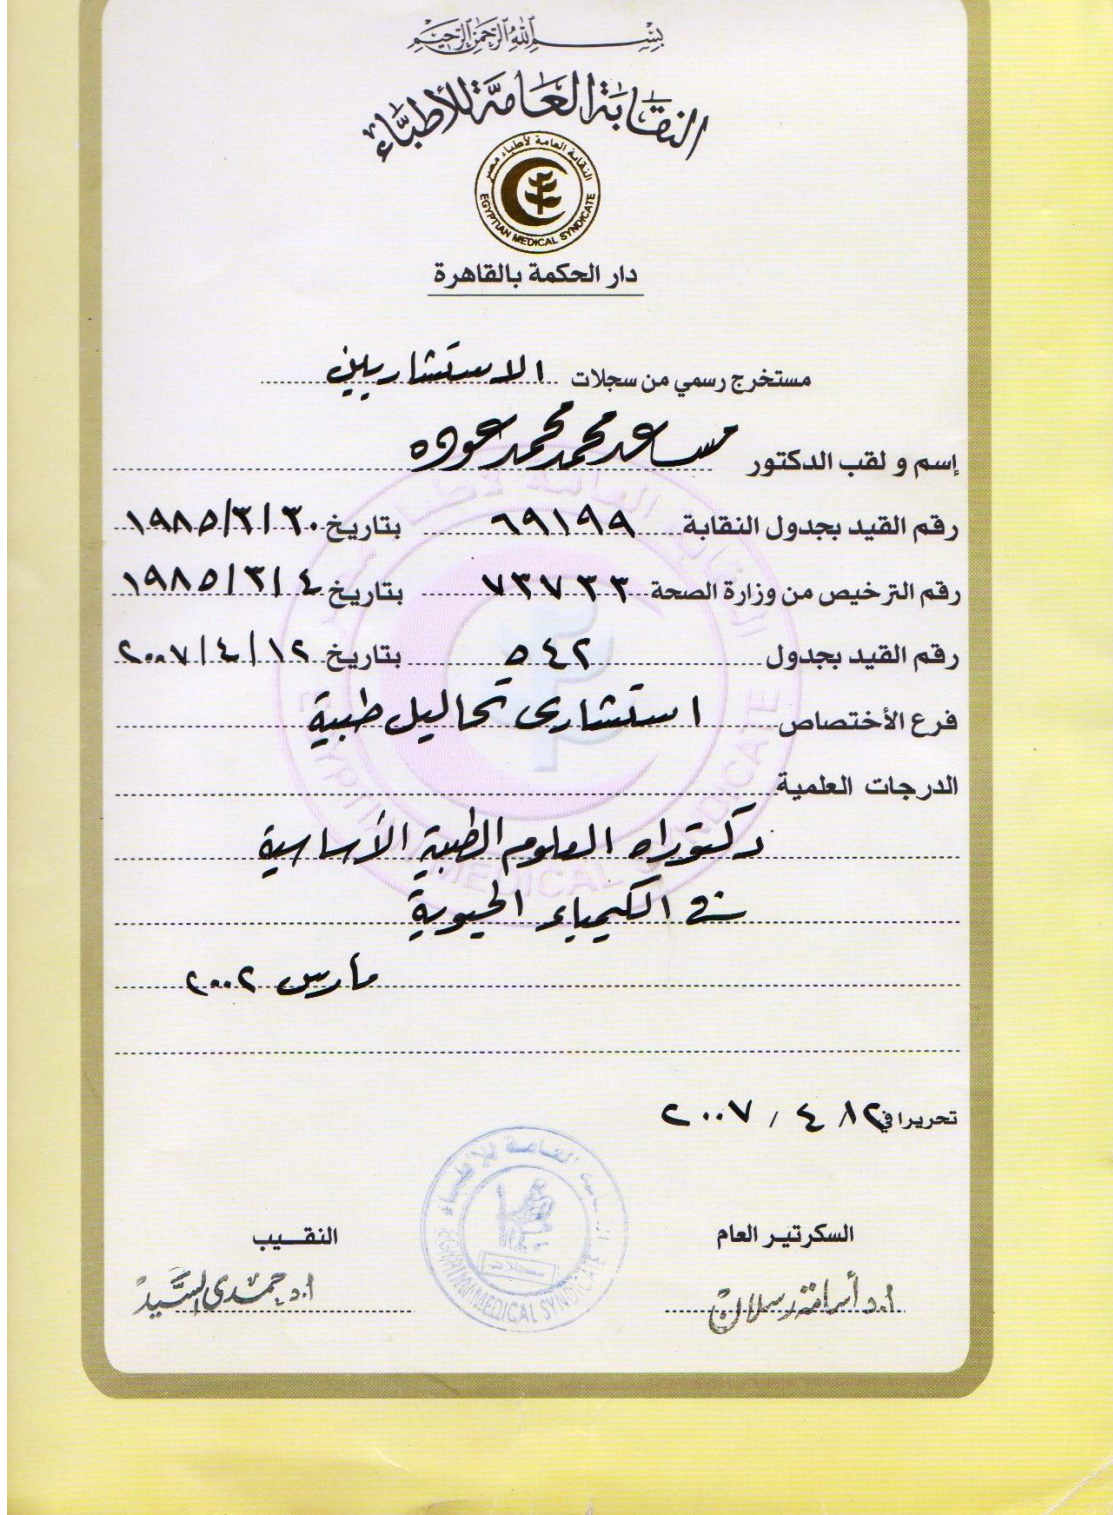 بسم الله الرحمن الرحيم
النقابة العامة للأطباء
النقابة العامة لأطباء مصر
EGYPTIAN MEDICAL SYNDICATE
دار الحكمة بالقاهرة
مستخرج رسمي من سجلات الاستشاريين
إسم و لقب الدكتور مسعد محمد محمد عوده
رقم القيد بجدول النقابة ٦٩١٩٩ بتاريخ ٣٠/٣/١٩٨٥
رقم الترخيص من وزارة الصحة ٧٣٧٣٣ بتاريخ ٤/٣/١٩٨٥
رقم القيد بجدول ٥٤٢ بتاريخ ١٢/٤/٢٠٠٧
فرع الأختصاص استشارى تحاليل طبية
الدرجات العلمية
دكتوراه العلوم الطبية الأساسية
في الكيمياء الحيوية
مارس ٢٠٠٢
تحريرا في ١٢ / ٤ / ٢٠٠٧
السكرتير العام
النقـــيب
أ.د أسامة رسلان
أ.د حمدى السيد
EGYPTIAN MEDICAL SYNDICATE